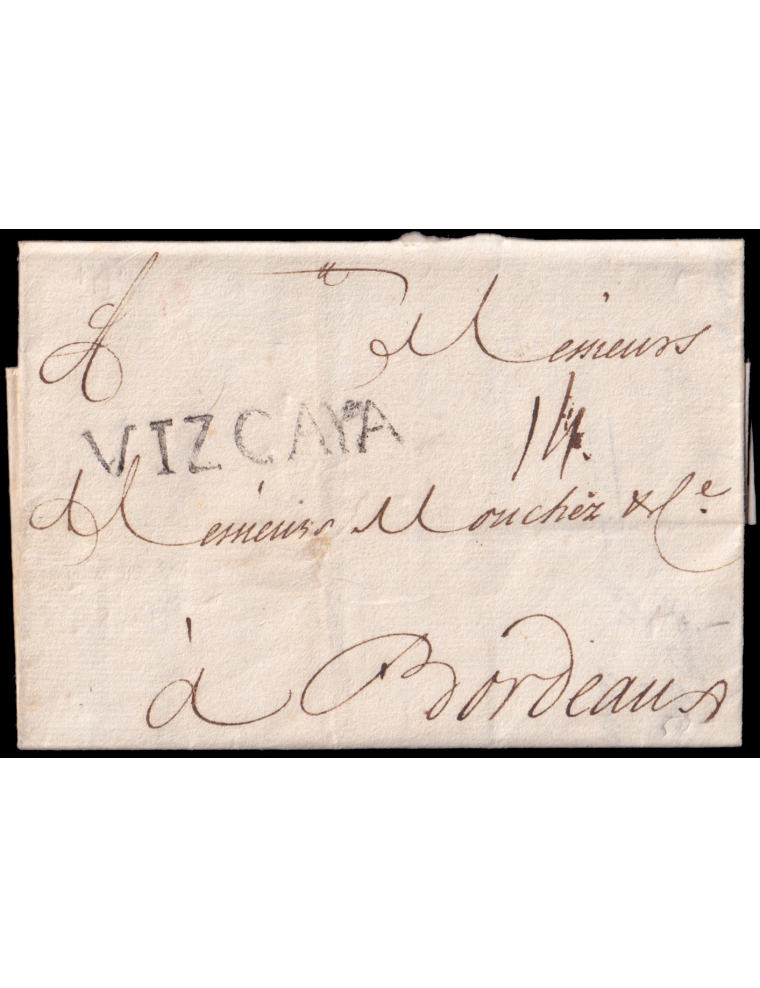 A Messieurs
VIZCAYA 14.
Messieurs Mouchèz & Ce.
à Bordeaux